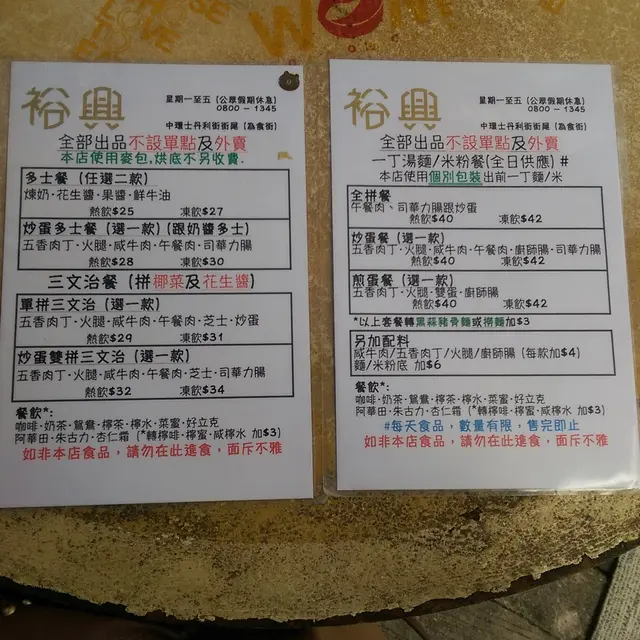 裕興
星期一至五 (公眾假期休息)
0800 - 1345
中環士丹利街街尾 (為食街)
全部出品不設單點及外賣
本店使用麥包,烘底不另收費.
多士餐 (任選二款)
煉奶·花生醬·果醬·鮮牛油
熱飲$25 凍飲$27
炒蛋多士餐 (選一款) (跟奶醬多士)
五香肉丁·火腿·咸牛肉·午餐肉·司華力腸
熱飲$28 凍飲$30
三文治餐 (拼椰菜及花生醬)
單拼三文治 (選一款)
五香肉丁·火腿·咸牛肉·午餐肉·芝士·炒蛋
熱飲$29 凍飲$31
炒蛋雙拼三文治 (選一款)
五香肉丁·火腿·咸牛肉·午餐肉·芝士·司華力腸
熱飲$32 凍飲$34
餐飲*:
咖啡·奶茶·鴛鴦·檸茶·檸水·菜蜜·好立克
阿華田·朱古力·杏仁霜 (*轉檸啡·檸蜜·咸檸水 加$3)
如非本店食品，請勿在此進食，面斥不雅
裕興
星期一至五 (公眾假期休息)
0800 - 1345
中環士丹利街街尾 (為食街)
全部出品不設單點及外賣
一丁湯麵/米粉餐(全日供應) #
本店使用個別包裝出前一丁麵/米
全拼餐
午餐肉、司華力腸跟炒蛋
熱飲$40 凍飲$42
炒蛋餐 (選一款)
五香肉丁·火腿·咸牛肉·午餐肉·廚師腸·司華力腸
熱飲$40 凍飲$42
煎蛋餐 (選一款)
五香肉丁·火腿·雙蛋·廚師腸
熱飲$40 凍飲$42
*以上套餐轉黑蒜豬骨麵或撈麵加$3
另加配料
咸牛肉/五香肉丁/火腿/廚師腸 (每款加$4)
麵/米粉底 加$6
餐飲*:
咖啡·奶茶·鴛鴦·檸茶·檸水·菜蜜·好立克
阿華田·朱古力·杏仁霜 (*轉檸啡·檸蜜·咸檸水 加$3)
#每天食品，數量有限，售完即止
如非本店食品，請勿在此進食，面斥不雅